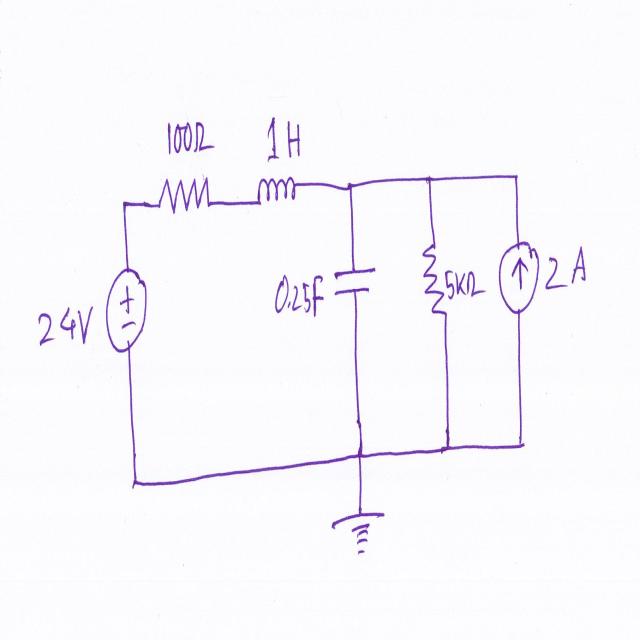 100Ω
1H
24V
+
-
0.25F
5KΩ
2A